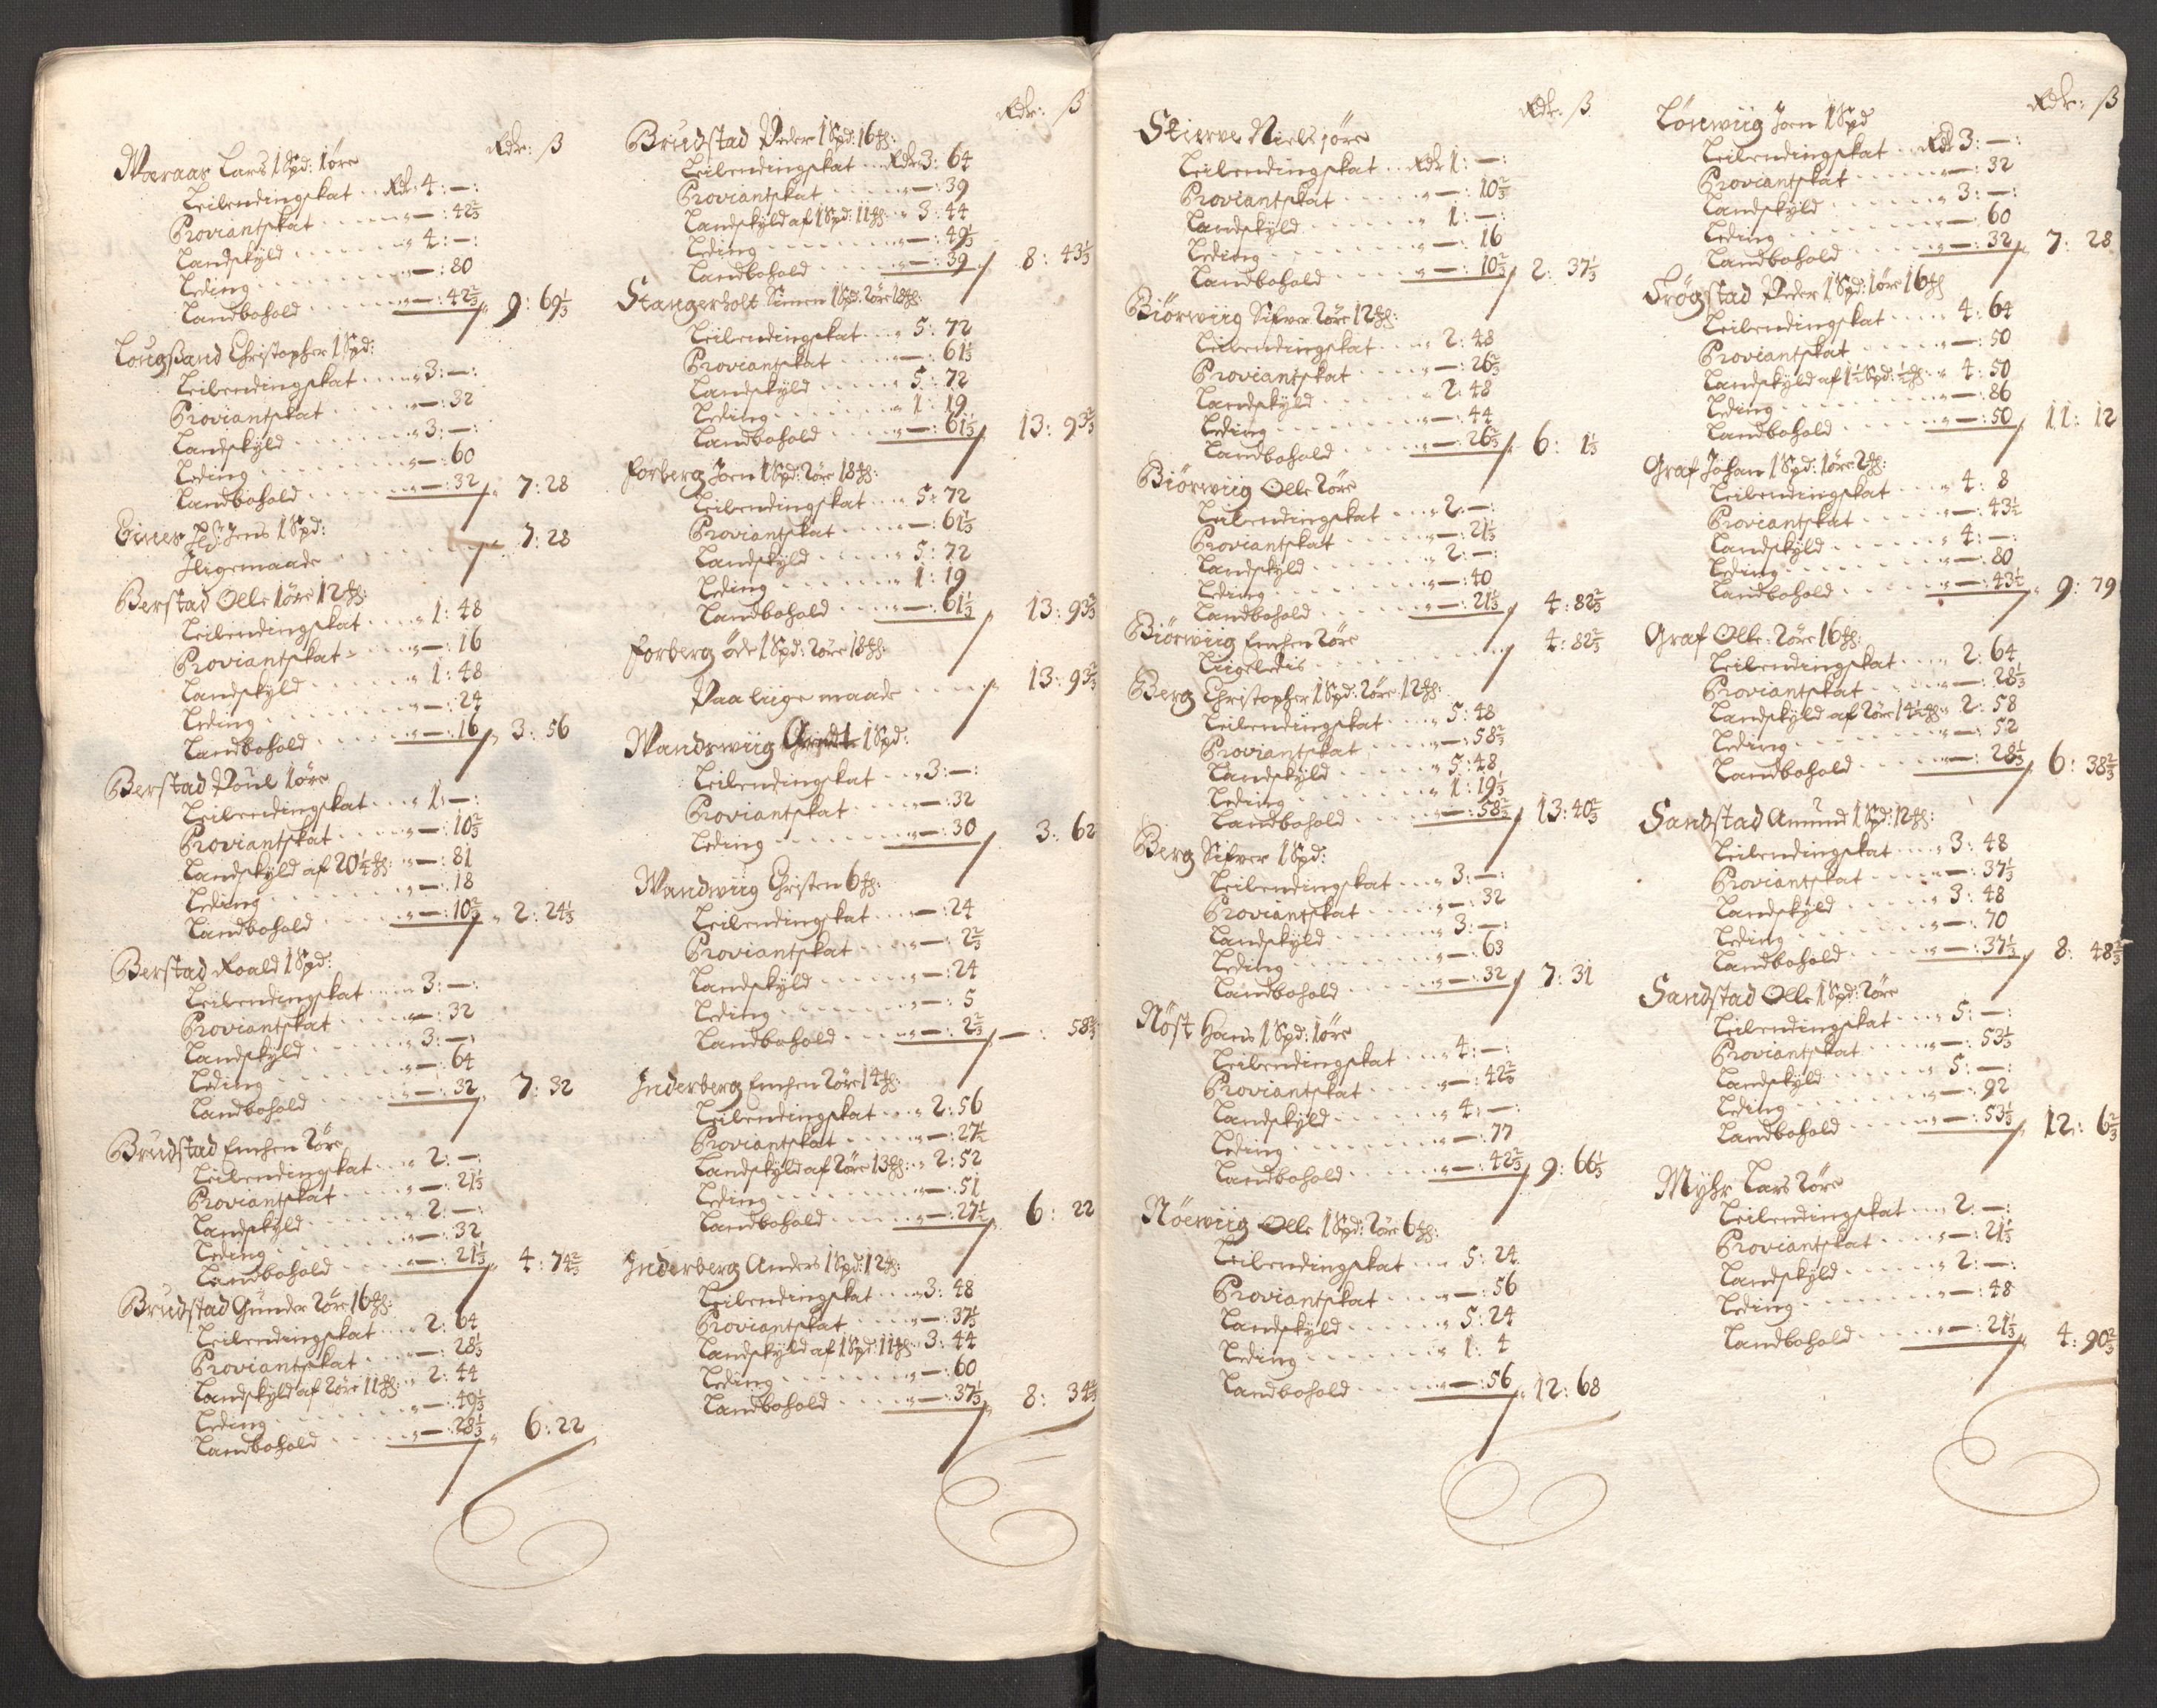 Rdr: ß
Waraas Lars 1 Spd: 1 øre
Leilendingskat .. Rdr 4: —:
Proviantskat ..... —: 42 2/3
Landskyld ..... 4: —:
Leding ..... —: 80
Landbohold ..... —: 42 2/3 9: 69 1/3
Christopher 1 Spd:
Leilendingskat ..... 3: —:
Proviantskat ..... —: 32
Landskyld ..... 3: —:
Leding ..... —: 60
Landbohold ..... —: 32 7: 28
Jens 1 Spd:
Iligemaade ..... 7: 28
Berstad Olle 1 øre 12 ℔:
Leilendingskat .... 1: 48
Proviantskat .... —: 16
Landskyld .... 1: 48
Leding .... —: 24
Landbohold .... —: 16 3: 56
Berstad Poul 1 øre
Leilendingskat ... 1: —:
Proviantskat ... —: 10 2/3
Landskyld af 20 1/4 ℔: —: 81
Leding .... —: 18
Landbohold .... —: 10 2/3 2: 24 1/3
Berstad Roald 1 Spd:
Leilendingskat .... 3: —:
Proviantskat .... —: 32
Landskyld .... 3: —:
Leding .... —: 64
Landbohold .... —: 32 7: 32
Brudstad Enchen 2 øre
Leilendingskat ... 2: —:
Proviantskat ... —: 21 1/3
Landskyld .... 2: —:
Leding .... —: 32
Landbohold .... —: 21 1/3 4: 74 2/3
Brudstad Gunder 2 øre 16 ℔:
Leilendingskat ... 2: 64
Proviantskat ... —: 28 1/3
Landskyld af 2 øre 11 ℔: 2: 44
Leding .... —: 49 1/3
Landbohold .... —: 28 1/3 6: 22
Rdr: ß
Brudstad Peder 1 Spd: 16 ℔:
Leilendingskat .. Rdr 3: 64
Proviantskat ..... —: 39
Landskyld af 1 Spd: 11 ℔: 3: 44
Leding ..... —: 49 1/3
Landbohold ..... —: 39 8: 43 1/3
Stangerholt Simen 1 Spd: 2 øre 18 ℔:
Leilendingskat ... 5: 72
Proviantskat .... —: 61 1/3
Landskyld .... 5: 72
Leding .... 1: 19
Landbohold .... —: 61 1/3 13: 93 2/3
Forberg Joen 1 Spd: 2 øre 18 ℔:
Leilendingskat ... 5: 72
Proviantskat .... —: 61 1/3
Landskyld .... 5: 72
Leding .... 1: 19
Landbohold .... —: 61 1/3 13: 93 2/3
Forberg Ode 1 Spd: 2 øre 18 ℔:
Paa liige maade .... 13: 93 2/3
Wandswiig 1 Spd:
Leilendingskat ... 3: —:
Proviantskat .... —: 32
Leding .... —: 30 3: 62
Wandwiig Christen 6 ℔:
Leilendingskat ... —: 24
Proviantskat .... —: 2 2/3
Landskyld .... —: 24
Leding .... —: 5
Landbohold .... —: 2 2/3 —: 58 1/3
Inderberg Enchen 2 øre 14 ℔:
Leilendingskat ... 2: 56
Proviantskat .... —: 27 1/2
Landskyld af 2 øre 13 ℔: 2: 52
Leding .... —: 51
Landbohold .... —: 27 1/2 6: 22
Inderberg Anders 1 Spd: 12 ℔:
Leilendingskat ... 3: 48
Proviantskat .... —: 37 1/3
Landskyld af 1 Spd: 11 ℔: 3: 44
Leding .... —: 60
Landbohold .... —: 37 1/3 8: 34 2/3
Rdr: ß
Stierve Niels 1 øre
Leilendingskat .. Rdr 1: —:
Proviantskat .... —: 10 2/3
Landskyld .... 1: —:
Leding .... —: 16
Landbohold .... —: 10 2/3 2: 37 1/3
Biörwiig Sifver 2 øre 12 ℔:
Leilendingskat ... 2: 48
Proviantskat .... —: 26 2/3
Landskyld .... 2: 48
Leding .... —: 44
Landbohold .... —: 26 2/3 6: 1 1/3
Biörwiig Olle 2 øre
Leilendingskat ... 2: —:
Proviantskat .... —: 21 1/3
Landskyld .... 2: —:
Leding .... —: 40
Landbohold .... —: 21 1/3 4: 82 2/3
Biörwiig Enchen 2 øre
Liigeledis .... 4: 82 2/3
Berg Christopher 1 Spd: 2 øre 12 ℔:
Leilendingskat ... 5: 48
Proviantskat .... —: 58 2/3
Landskyld .... 5: 48
Leding .... 1: 19 1/3
Landbohold .... —: 58 2/3 13: 40 2/3
Berg Sifver 1 Spd:
Leilendingskat ... 3: —:
Proviantskat .... —: 32
Landskyld .... 3: —:
Leding .... —: 63
Landbohold .... —: 32 7: 31
Nöst Hans 1 Spd: 1 øre
Leilendingskat ... 4: —:
Proviantskat .... —: 42 2/3
Landskyld .... 4: —:
Leding .... —: 77
Landbohold .... —: 42 2/3 9: 66 1/3
Nöewiig Olle 1 Spd: 2 øre 6 ℔:
Leilendingskat ... 5: 24
Proviantskat .... —: 56
Landskyld .... 5: 24
Leding .... 1: 4
Landbohold .... —: 56 12: 68
Rdr: ß
Lörewiig Joen 1 Spd
Leilendingskat .. Rdr 3: —:
Proviantskat .... —: 32
Landskyld .... 3: —:
Leding .... —: 60
Landbohold .... —: 32 7: 28
Frögstad Peder 1 Spd: 1 øre 16 ℔
Leilendingskat ... 4: 64
Proviantskat .... —: 50
Landskyld af 1 1/2 Spd: 1/2 ℔: 4: 50
Leding .... —: 86
Landbohold .... —: 50 11: 12
Graf Johan 1 Spd: 1 øre 2 ℔:
Leilendingskat ... 4: 8
Proviantskat .... —: 43 1/2
Landskyld .... 4: —:
Leding .... —: 80
Landbohold .... —: 43 1/2 9: 79
Graf Olle 2 øre 16 ℔:
Leilendingskat ... 2: 64
Proviantskat .... —: 28 1/3
Landskyld af 2 øre 14 1/2 ℔: 2: 58
Leding .... —: 52
Landbohold .... —: 28 1/3 6: 38 2/3
Sandstad Amund 1 Spd: 12 ℔:
Leilendingskat ... 3: 48
Proviantskat .... —: 37 1/3
Landskyld .... 3: 48
Leding .... —: 70
Landbohold .... —: 37 1/3 8: 48 2/3
Sandstad Olle 1 Spd: 2 øre
Leilendingskat ... 5: —:
Proviantskat .... —: 53 1/3
Landskyld .... 5: —:
Leding .... —: 92
Landbohold .... —: 53 1/3 12: 6 2/3
Myhr Lars 2 øre
Leilendingskat ... 2: —:
Proviantskat .... —: 21 1/3
Landskyld .... 2: —:
Leding .... —: 48
Landbohold .... —: 21 1/3 4: 90 2/3